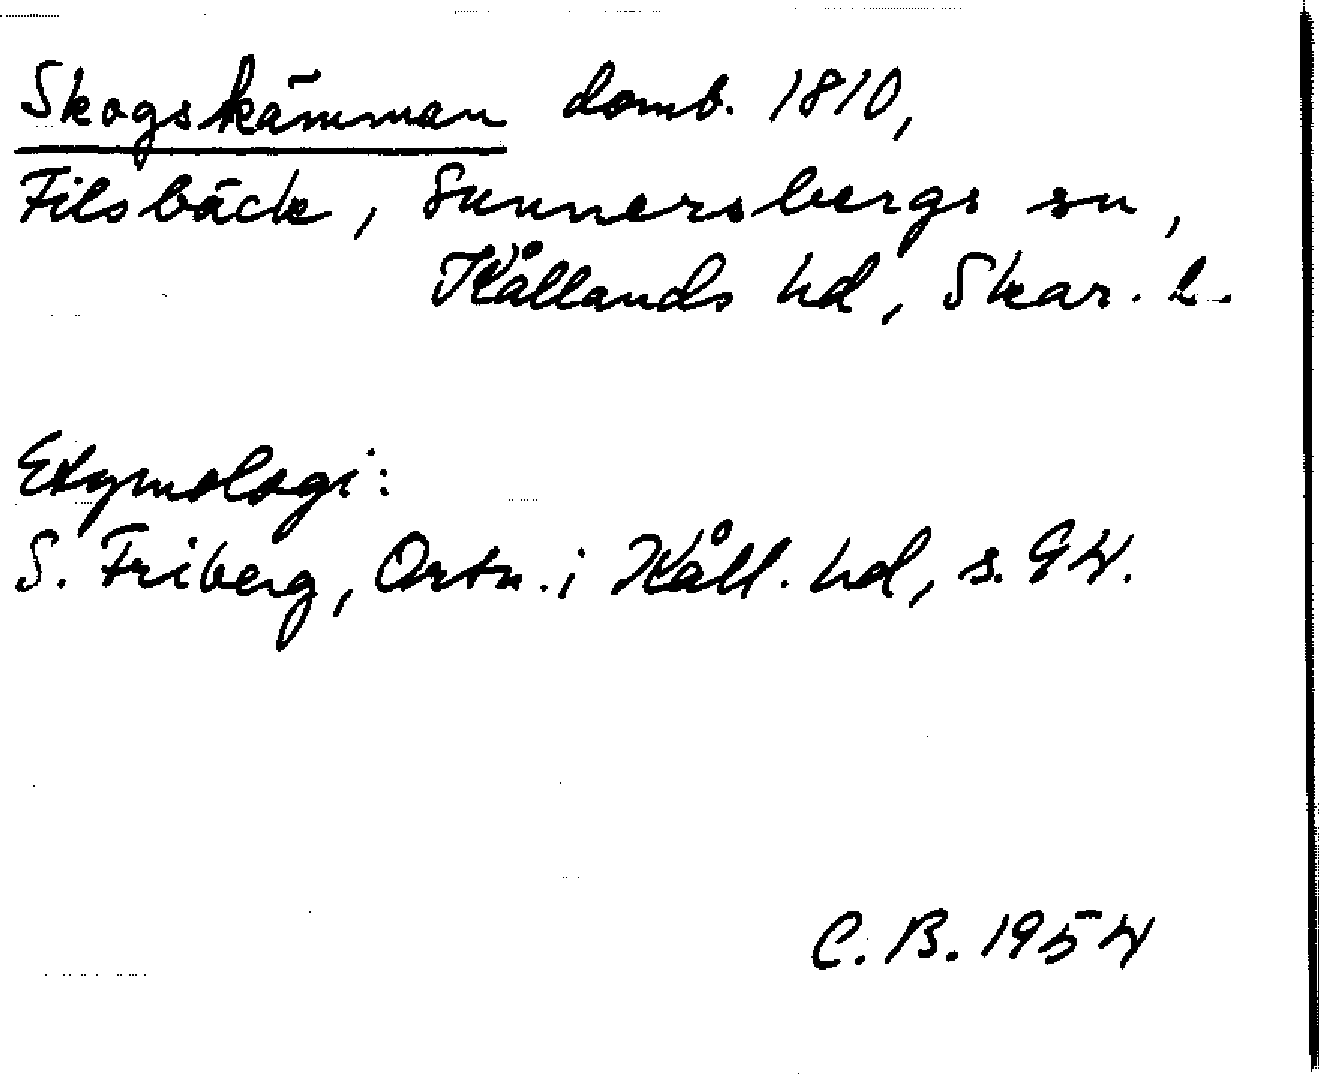 Skogskämman domb. 1810,
Filsbäck, Sunnersbergs sn,
Kållands hd, Skar. l.
Etymologi:
S. Friberg, Ortn. i Kåll. hd, s. 94.
C. B. 1954